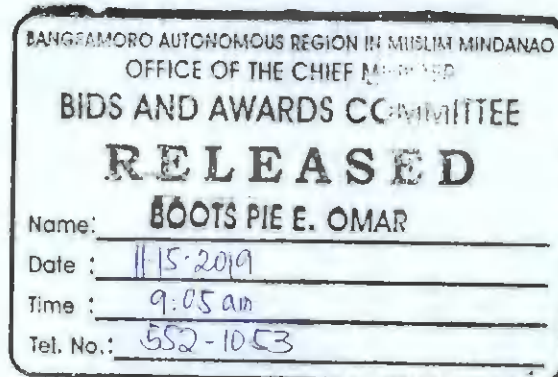 BANGSAMORO AUTONOMOUS REGION IN MUSLIM MINDANAO
OFFICE OF THE CHIEF MINISTER
BIDS AND AWARDS COMMITTEE
RELEASED
Name: BOOTS PIE E. OMAR
Date : 11-15-2019
Time : 9:05 am
Tel. No.: 552-1053